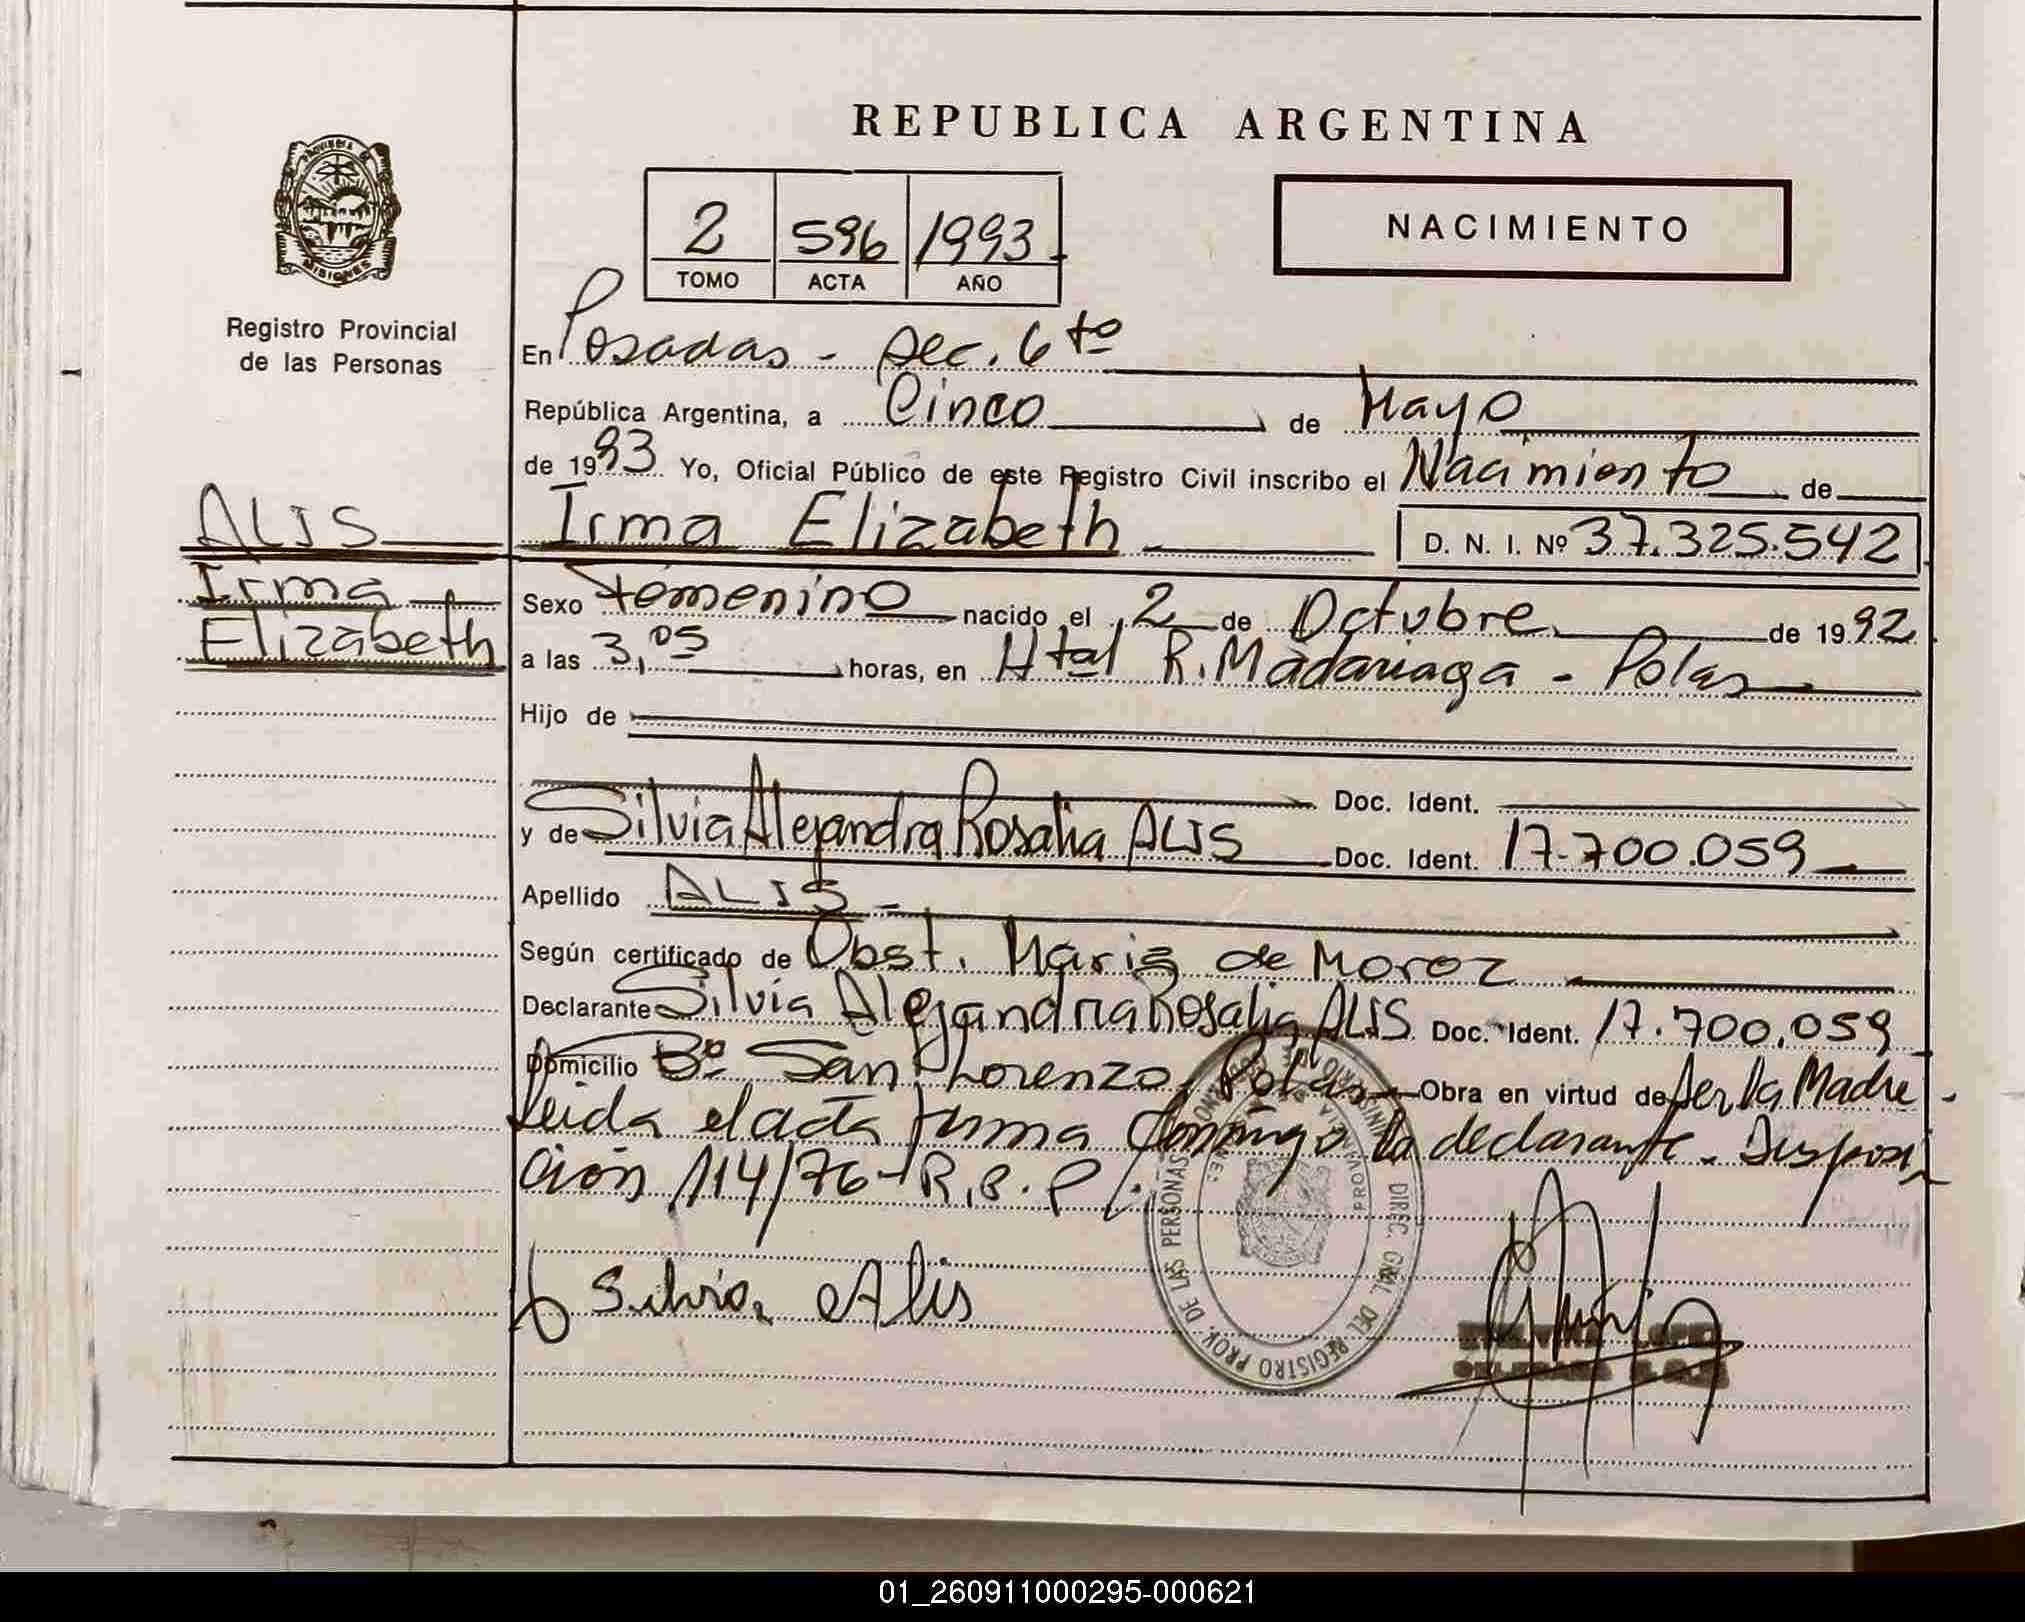 REPUBLICA ARGENTINA
2 596 1993
TOMO ACTA AÑO
NACIMIENTO
PROVINCIA DE
MISIONES
Registro Provincial
de las Personas
En Posadas - Sec. 6tº
República Argentina, a Cinco de Mayo
de 1993 Yo, Oficial Público de este Registro Civil inscribo el Nacimiento de
ALIS
Irma
Elizabeth
Irma Elizabeth D. N. I. Nº 37.325.542
Sexo Femenino nacido el 2 de Octubre de 1992
a las 3,05 horas, en Htal R. Madariaga - Pdas
Hijo de
Doc. Ident.
y de Silvia Alejandra Rosalia ALIS Doc. Ident. 17.700.059
Apellido ALIS -
Según certificado de Obst. Maria de Moroz
Declarante Silvia Alejandra Rosalia ALIS Doc. Ident. 17.700.059
Domicilio Bº San Lorenzo, Pdas Obra en virtud de ser la Madre -
Leida el acta firma conmigo la declarante. Disposi
ción 114/76 - R.B.P/.
Silvia Alis
DIREC. GRAL. DEL REGISTRO PROV. DE LAS PERSONAS
01_260911000295-000621